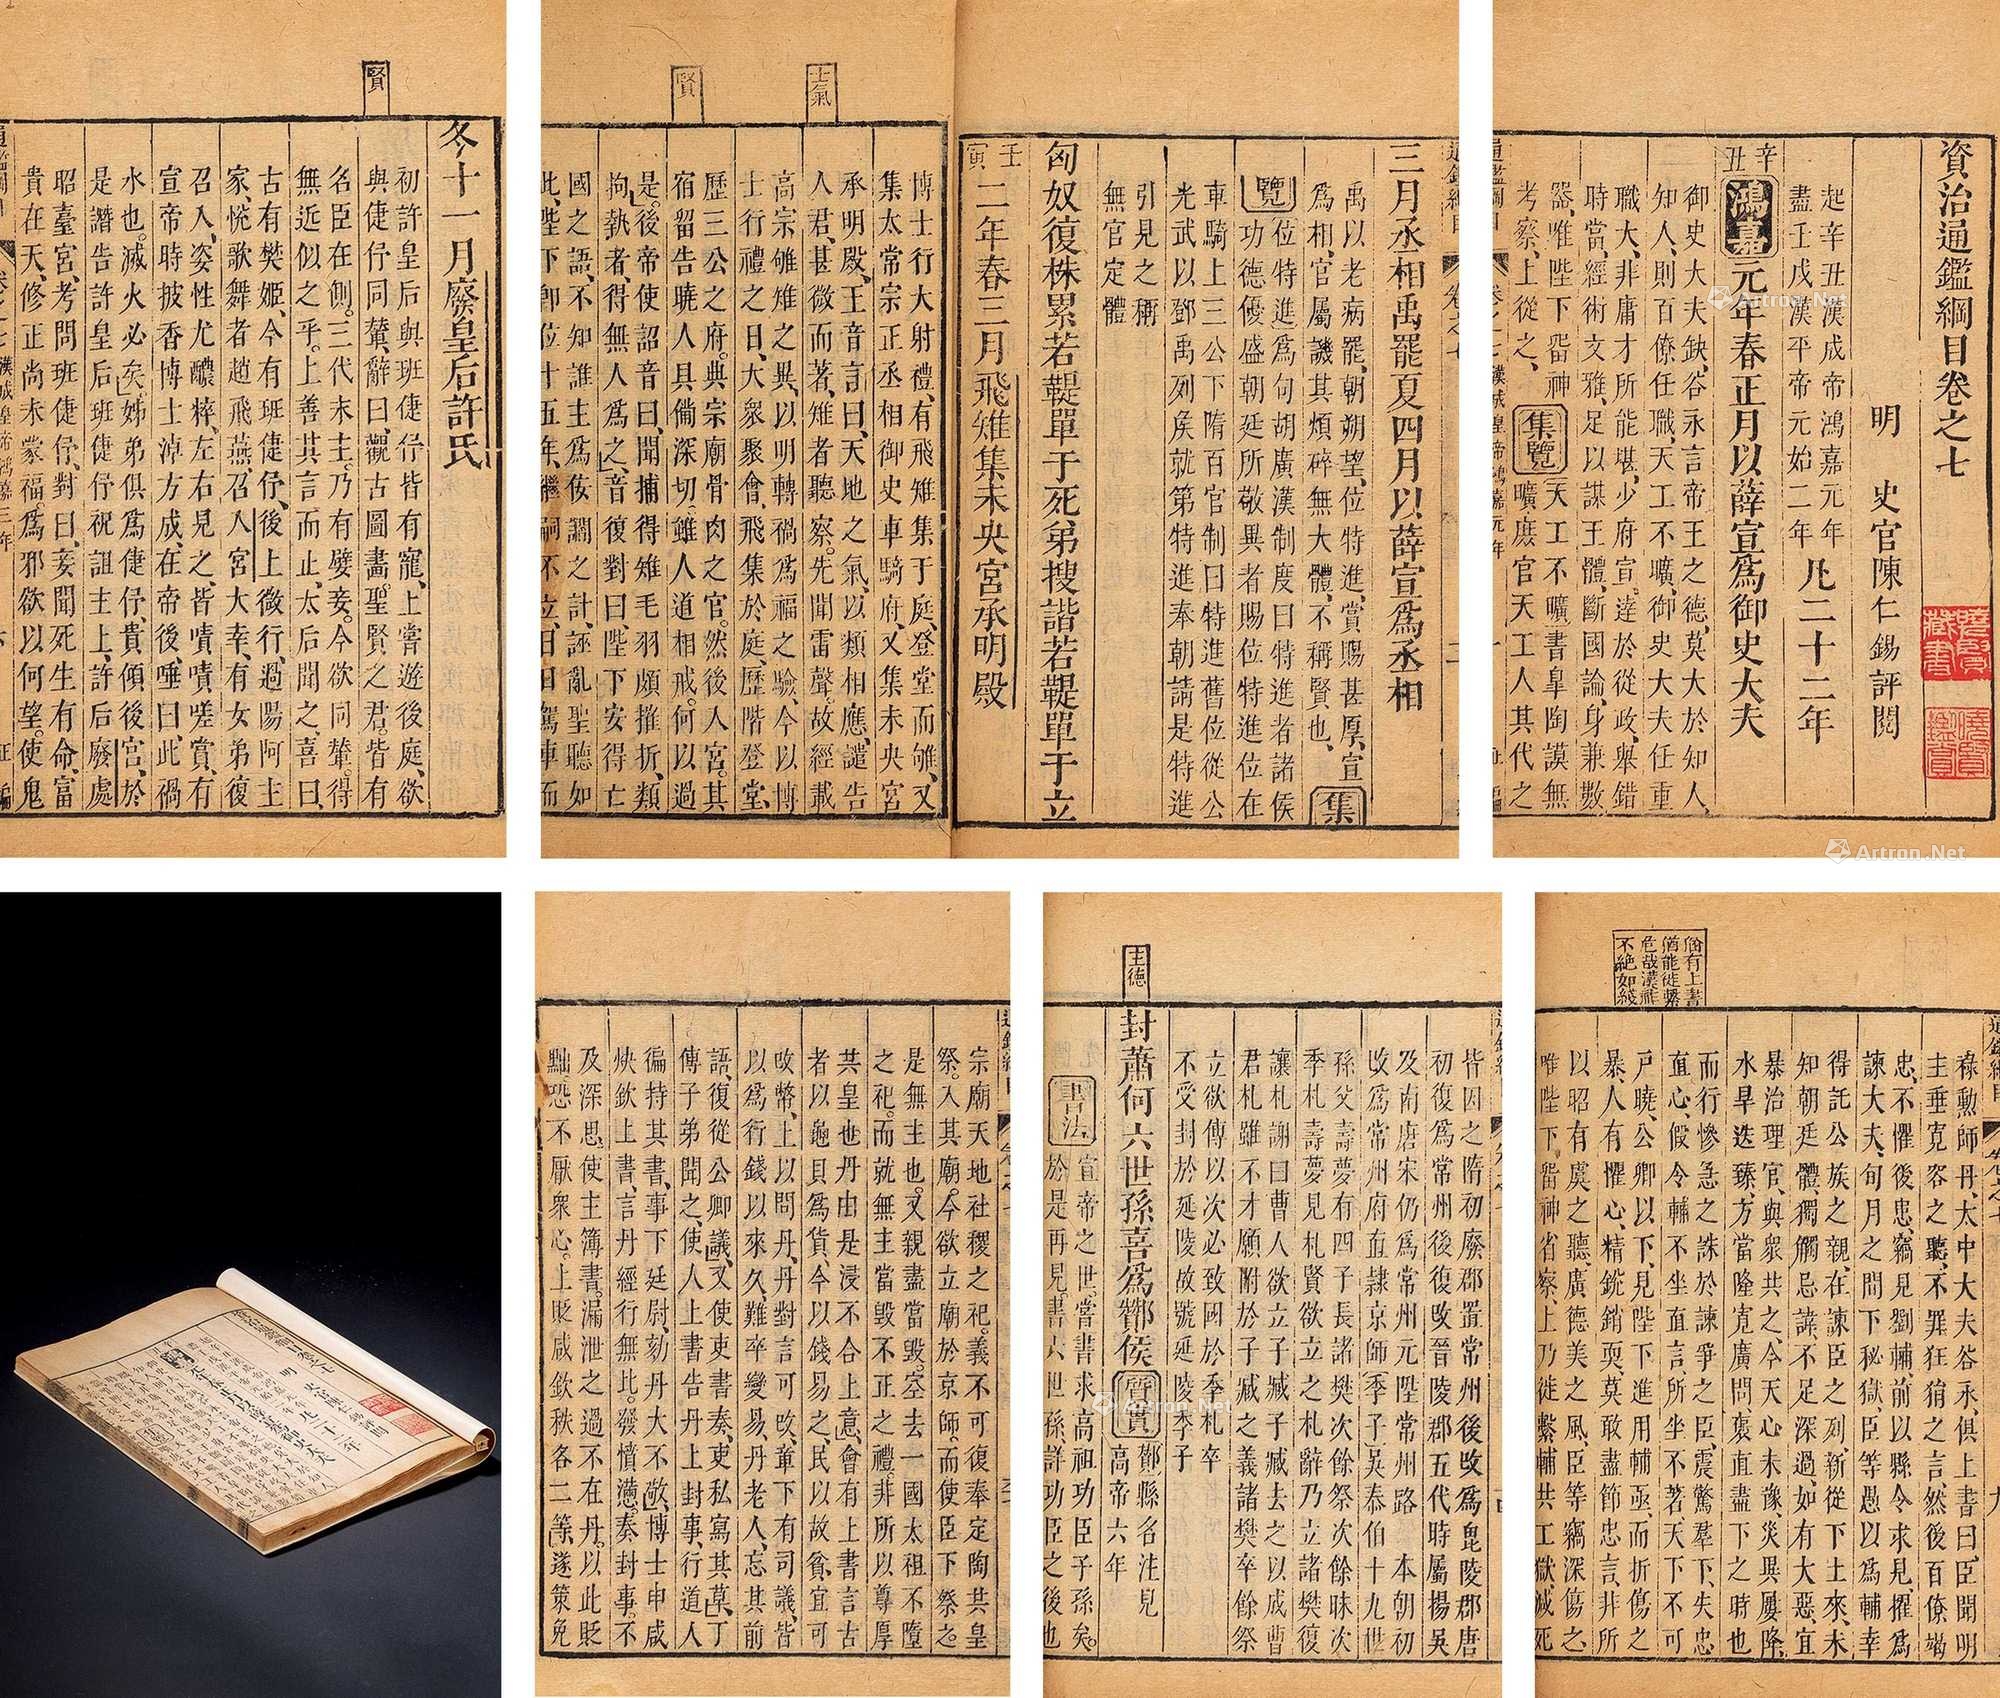 資治通鑑綱目卷之七
明 史官陳仁錫評閱
起辛丑漢成帝鴻嘉元年
盡壬戌漢平帝元始二年 凡二十二年
辛丑 鴻嘉元年春正月以薛宣爲御史大夫
御史大夫缺谷永言帝王之德莫大於知人
知人則百僚任職天工不曠御史大夫任重
職大非庸才所能堪少府宣達於從政舉錯
時當經術文雅足以謀王體斷國論身兼數
器唯陛下留神 集覽 天工不曠書臯陶謨無
考察上從之 曠庶官天工人其代之
三月丞相禹罷夏四月以薛宣爲丞相
禹以老病罷朝朔望位特進賞賜甚厚宣 集
爲相官屬譏其煩碎無大體不稱賢也
覽 位特進爲句胡廣漢制度曰特進者諸侯
功德優盛朝廷所敬異者賜位特進位在
車騎上三公下隋百官制曰特進舊位從公
光武以鄧禹列侯就第特進奉朝請是特進
引見之稱
無官定體
匈奴復株累若鞮單于死弟搜諧若鞮單于立
壬寅 二年春三月飛雉集未央宮承明殿
士氣
賢
博士行大射禮有飛雉集于庭登堂而雊又
集太常宗正丞相御史車騎府又集未央宮
承明殿王音言曰天地之氣以類相應譴告
人君甚微而著雉者聽察先聞雷聲故經載
高宗雊雉之異以明轉禍爲福之驗今以博
士行禮之日大衆聚會飛集於庭歷階登堂
歷三公之府典宗廟骨肉之官然後入宮其
宿留告曉人具備深切雖人道相戒何以過
是後帝使詔音曰聞捕得雉毛羽頗摧折類
拘執者得無人爲之音復對曰陛下安得亡
國之語不知誰主爲佞讇之計誣亂聖聽如
此陛下卽位十五年繼嗣不立日日駕車而
賢
冬十一月廢皇后許氏
初許皇后與班倢伃皆有寵上嘗遊後庭欲
與倢伃同輦辭曰觀古圖畫聖賢之君皆有
名臣在側三代末主乃有嬖妾今欲同輦得
無近似之乎上善其言而止太后聞之喜曰
古有樊姬今有班倢伃後上微行過陽阿主
家恱歌舞者趙飛燕召入宮大幸有女弟復
召入姿性尤醲粹左右見之皆嘖嘖嗟賞有
宣帝時披香博士淖方成在帝後唾曰此禍
水也滅火必矣姊弟俱爲倢伃貴傾後宮於
是譖告許皇后班倢伃祝詛主上許后廢處
昭臺宮考問班倢伃對曰妾聞死生有命富
貴在天修正尚未蒙福爲邪欲以何望使鬼
尚有上書
猶能從繫
危哉漢祚
不絕如綫
祿勲師丹太中大夫谷永俱上書曰臣聞明
主垂寬容之聽不罪狂狷之言然後百僚竭
忠不懼後患竊見劉輔前以縣令求見擢爲
諫大夫旬月之間下秘獄臣等愚以爲輔幸
得託公族之親在諫臣之列新從下土來未
知朝廷體獨觸忌諱不足深過如有大惡宜
暴治理官與衆共之今天心未豫災異屢降
水旱迭臻方當隆寬廣問褒直盡下之時也
而行慘急之誅於諫爭之臣震驚羣下失忠
直心假令輔不坐直言所坐不著天下不可
戸曉公卿以下見陛下進用輔亟而折傷之
暴人有懼心精銳銷耎莫敢盡節忠言非所
以昭有虞之聽廣德美之風臣等竊深傷之
唯陛下留神省察上乃徙繫輔共工獄減死
主德
皆因之隋初廢郡置常州後攺爲毘陵郡唐
初復爲常州後復攺晉陵郡五代時屬揚吳
及南唐宋仍爲常州元陞常州路 本朝初
攺爲常州府直隸京師季子吳泰伯十九世
孫父壽夢有四子長諸樊次餘祭次餘昧次
季札壽夢見札賢欲立之札辭乃立諸樊復
讓札謝曰曹人欲立子臧子臧去之以成曹
君札雖不才願附於子臧之義諸樊卒餘祭
立欲傳以次必致國於季札卒
不受封於延陵故號延陵季子
封蕭何六世孫喜爲酇侯 質實 酇縣名注見
高帝六年
書法 宣帝之世嘗書求高祖功臣子孫矣
於是再見書六世孫詳功臣之後也
宗廟天地社稷之祀義不可復奉定陶共皇
祭入其廟今欲立廟於京師而使臣下祭之
是無主也又親盡當毀空去一國太祖不墮
之祀而就無主當毀不正之禮非所以尊厚
共皇也丹由是浸不合上意會有上書言古
者以龜貝爲貨今以錢易之民以故貧宜可
攺幣上以問丹丹對言可攺章下有司議皆
以爲行錢以來久難卒變易丹老人忘其前
語復從公卿議又使吏書奏吏私寫其草丁
傅子弟聞之使人上書告丹上封事行道人
徧持其書事下廷尉劾丹大不敬博士申咸
炔欽上書言丹經行無比發憤懣奏封事不
及深思使主簿書漏泄之過不在丹以此貶
黜恐不厭衆心上貶咸欽秩各二等遂策免